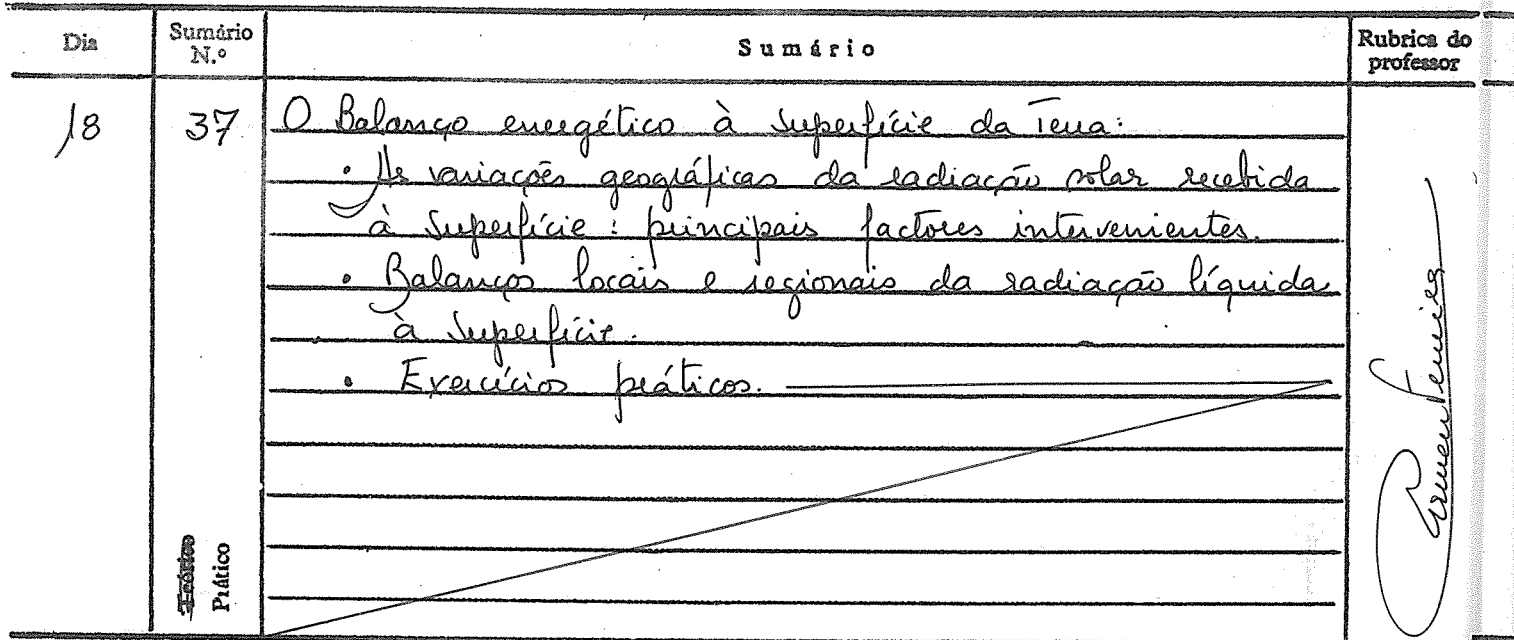 Dia
Sumário N.º
Sumário
Rubrica do professor
18
37
O Balanço energético à Superfície da Terra:
• As variações geográficas da radiação solar recebida
à Superfície : principais factores intervenientes.
• Balanços locais e regionais da radiação líquida
à Superfície.
• Exercícios práticos.
Teórico
Prático